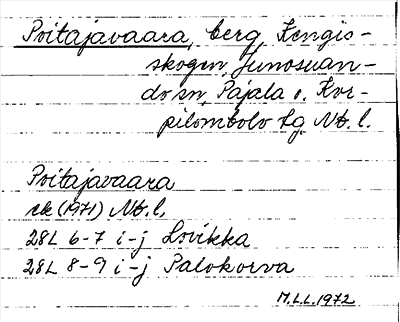 Poitajavaara, berg, Kengis-
skogen, Junosuan-
do sn, Pajala o. Kor-
pilombolo tg. Nb. l.
Poitajavaara
ek (1971) Nb. l.
28L 6-7 i-j Lovikka
28L 8-9 i-j Palokorva
M.L.L. 1972